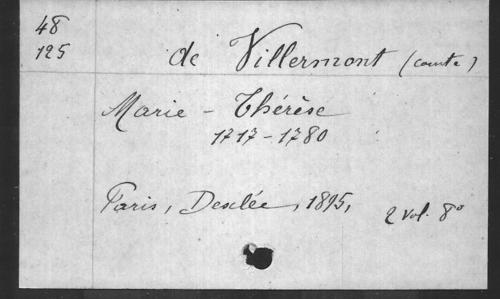 48
125
de Villermont (comte)
Marie - Thérèse
1717-1780
Paris, Desclée, 1895, 2 vol. 8°